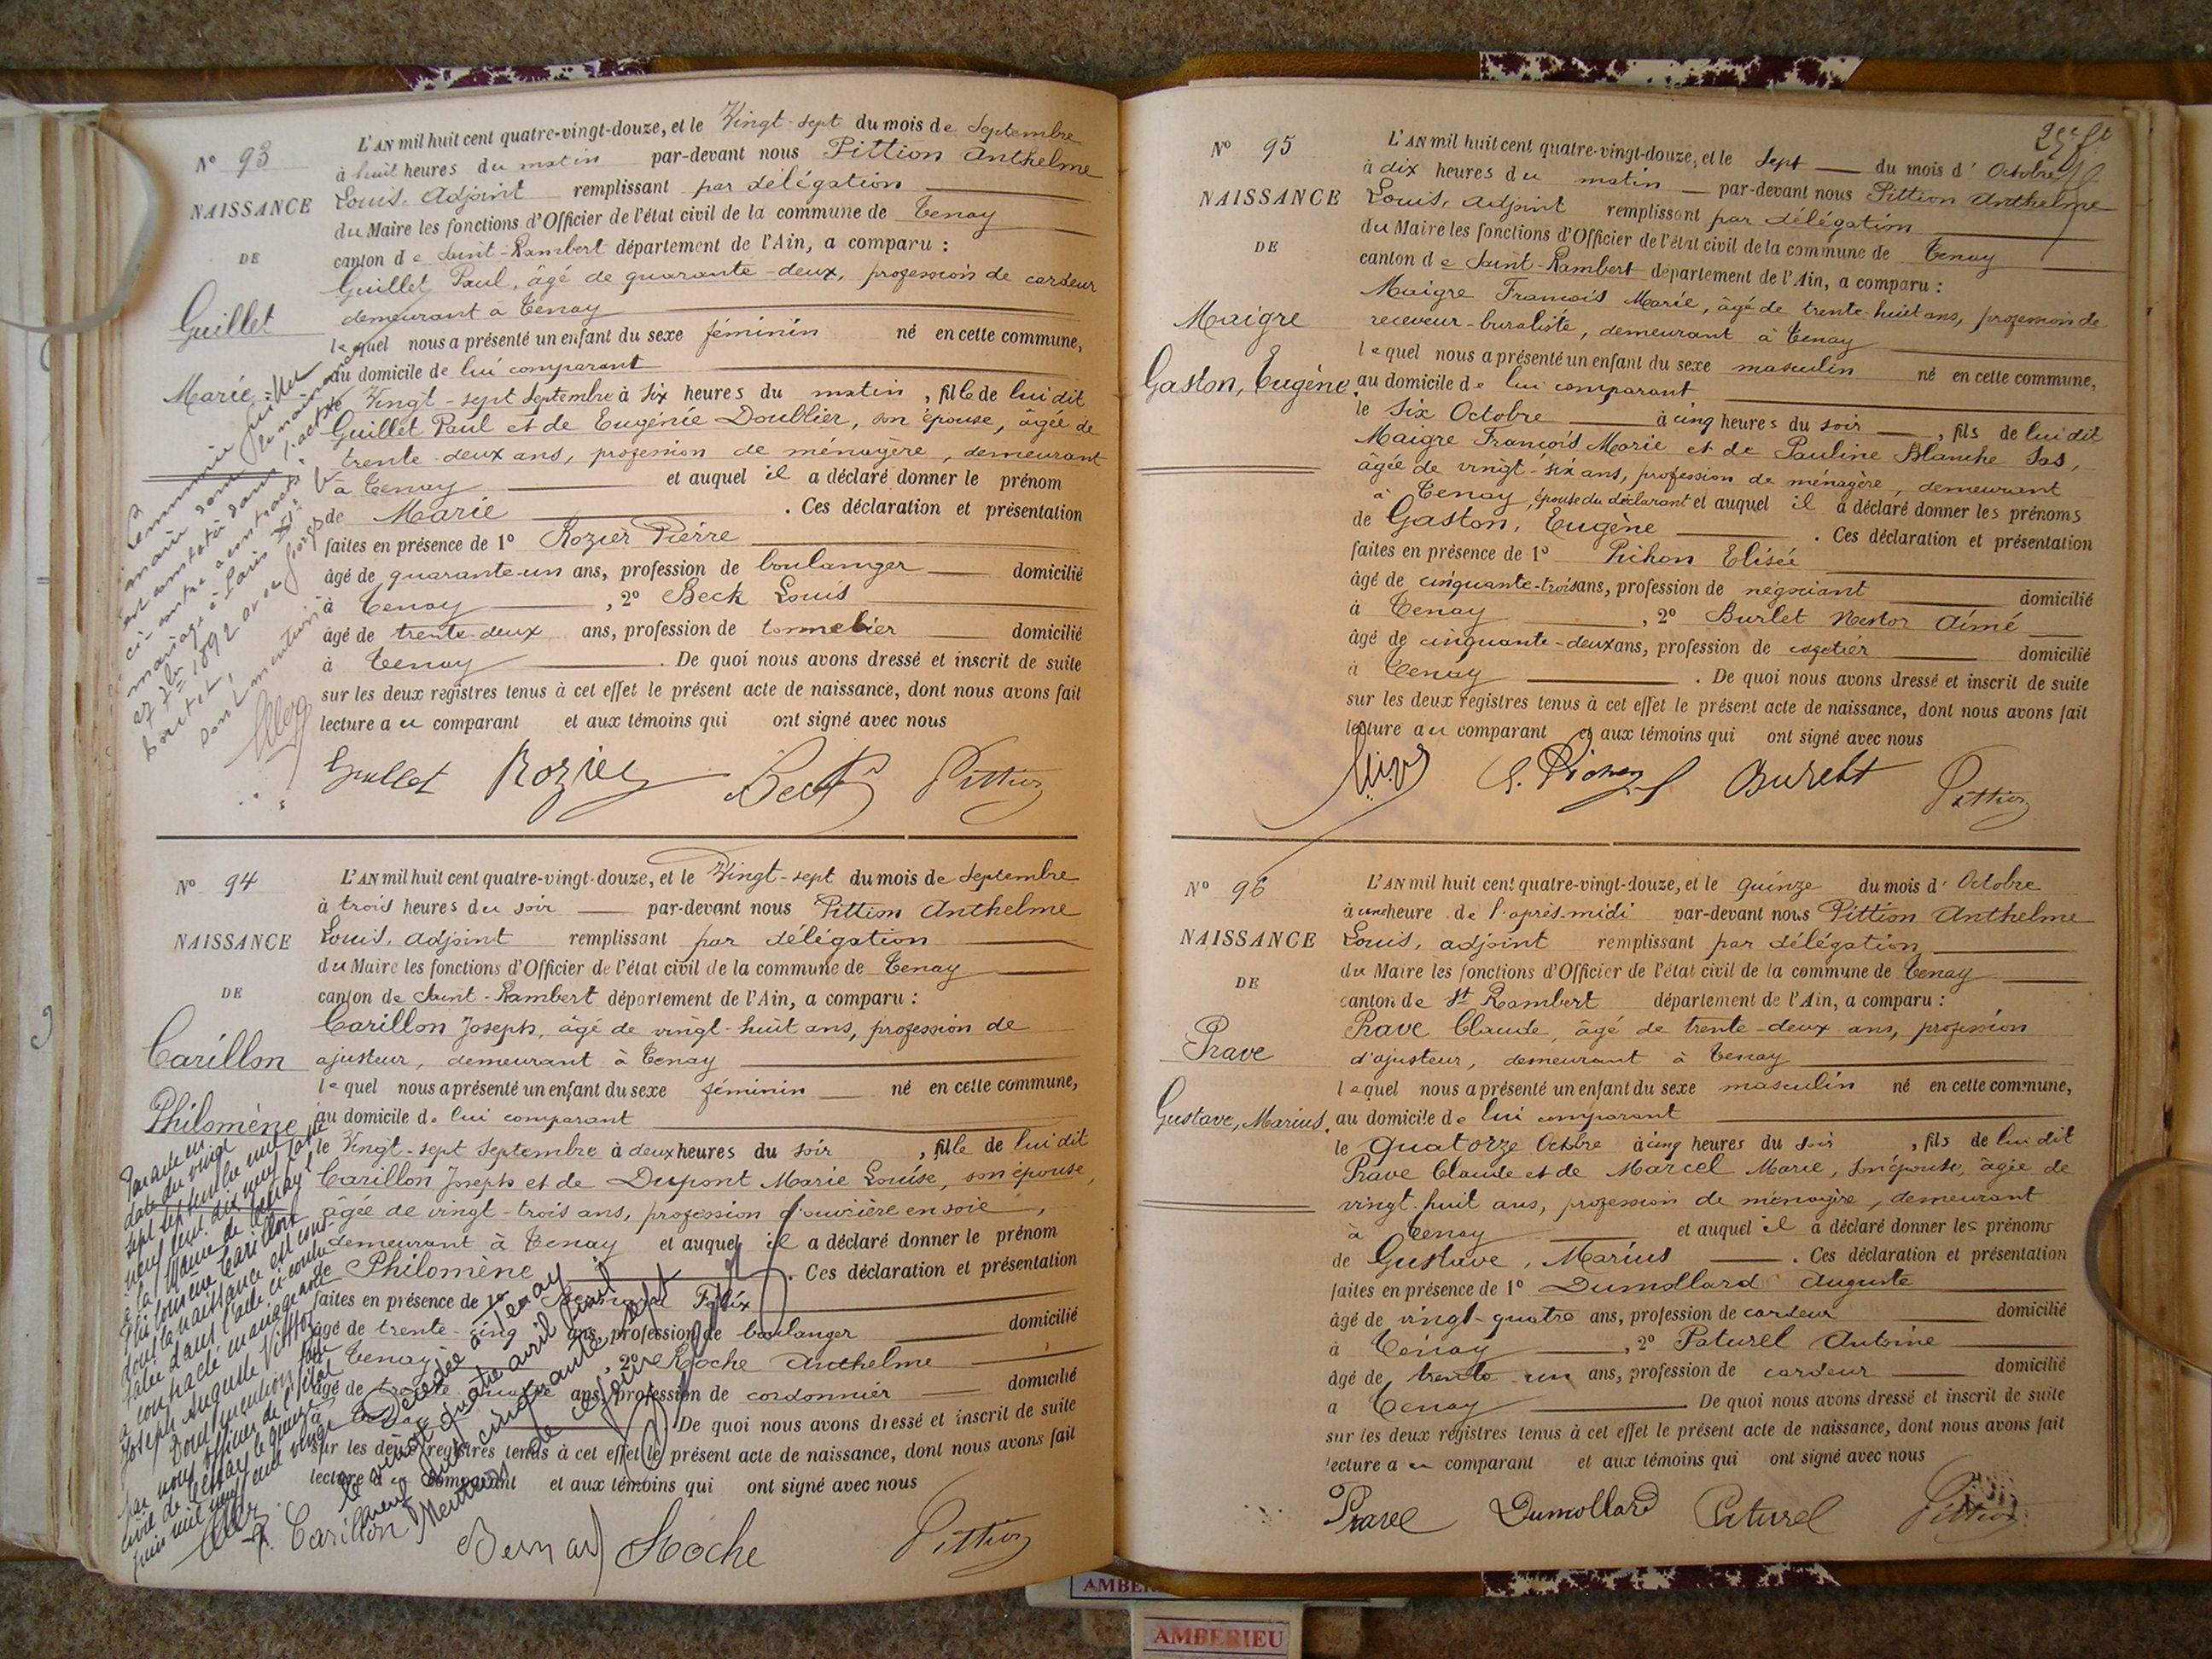 Nº 93
NAISSANCE
DE
Guillet
Marie
L'AN mil huit cent quatre-vingt-douze, et le Vingt-sept du mois de Septembre
à huit heures du matin par-devant nous Pittion Anthelme
Louis, Adjoint remplissant par délégation
du Maire les fonctions d'Officier de l'état civil de la commune de Tenay
canton de Saint-Rambert département de l'Ain, a comparu :
Guillet Paul, âgé de quarante-deux, profession de cardeur
demeurant à Tenay
lequel nous a présenté un enfant du sexe féminin né en cette commune,
au domicile de lui comparant
Vingt-sept Septembre à six heures du matin, fille de lui dit
Guillet Paul et de Eugénie Doublier, son épouse, âgée de
trente-deux ans, profession de ménagère, demeurant
à Tenay et auquel il a déclaré donner le prénom
de Marie. Ces déclaration et présentation
faites en présence de 1º Rozier Pierre
âgé de quarante-un ans, profession de boulanger domicilié
à Tenay, 2º Beck Louis
âgé de trente-deux ans, profession de tonnelier domicilié
à Tenay. De quoi nous avons dressé et inscrit de suite
sur les deux registres tenus à cet effet le présent acte de naissance, dont nous avons fait
lecture au comparant et aux témoins qui ont signé avec nous
Guillet Rozier Beck Pittion
Nº 94
NAISSANCE
DE
Carillon
Philomène
L'AN mil huit cent quatre-vingt-douze, et le Vingt-sept du mois de Septembre
à trois heures du soir par-devant nous Pittion Anthelme
Louis, adjoint remplissant par délégation
du Maire les fonctions d'Officier de l'état civil de la commune de Tenay
canton de Saint-Rambert département de l'Ain, a comparu :
Carillon Joseph, âgé de vingt-huit ans, profession de
ajusteur, demeurant à Tenay
lequel nous a présenté un enfant du sexe féminin né en cette commune,
au domicile de lui comparant
le Vingt-sept Septembre à deux heures du soir, fille de lui dit
Carillon Joseph et de Dupont Marie Louise, son épouse,
âgée de vingt-trois ans, profession d'ouvrière en soie,
demeurant à Tenay et auquel il a déclaré donner le prénom
Philomène. Ces déclaration et présentation
faites en présence de 1º Félix
âgé de trente-cinq ans, profession de boulanger domicilié
Tenay, 2º Roche Anthelme
âgé de ans, profession de cordonnier domicilié
De quoi nous avons dressé et inscrit de suite
sur les deux registres tenus à cet effet le présent acte de naissance, dont nous avons fait
lecture au comparant et aux témoins qui ont signé avec nous
Décédée à Tenay
le vingt quatre avril mil
neuf cent cinquante sept
J. Carillon Bernard Roche Pittion
Nº 95
NAISSANCE
DE
Maigre
Gaston, Eugène.
L'AN mil huit cent quatre-vingt-douze, et le Sept du mois d'Octobre
à dix heures du matin par-devant nous Pittion Anthelme
Louis, adjoint remplissant par délégation
du Maire les fonctions d'Officier de l'état civil de la commune de Tenay
canton de Saint-Rambert département de l'Ain, a comparu :
Maigre François Marie, âgé de trente-huit ans, profession de
receveur-buraliste, demeurant à Tenay
lequel nous a présenté un enfant du sexe masculin né en cette commune,
au domicile de lui comparant
le six Octobre à cinq heures du soir, fils de lui dit
Maigre François Marie et de Pauline Blanche Sas,
âgée de vingt-six ans, profession de ménagère, demeurant
à Tenay, épouse du déclarant et auquel il a déclaré donner les prénoms
de Gaston, Eugène. Ces déclaration et présentation
faites en présence de 1º Pichon Elisée
âgé de cinquante-trois ans, profession de négociant domicilié
à Tenay, 2º Burlet Nestor Aimé
âgé de cinquante-deux ans, profession de cafetier domicilié
à Tenay. De quoi nous avons dressé et inscrit de suite
sur les deux registres tenus à cet effet le présent acte de naissance, dont nous avons fait
lecture au comparant et aux témoins qui ont signé avec nous
E. Pichon Burlet Pittion
Nº 96
NAISSANCE
DE
Prave
Gustave, Marius.
L'AN mil huit cent quatre-vingt-douze, et le quinze du mois d'Octobre
à une heure de l'après-midi par-devant nous Pittion Anthelme
Louis, adjoint remplissant par délégation
du Maire les fonctions d'Officier de l'état civil de la commune de Tenay
canton de St Rambert département de l'Ain, a comparu :
Prave Claude, âgé de trente-deux ans, profession
d'ajusteur, demeurant à Tenay
lequel nous a présenté un enfant du sexe masculin né en cette commune,
au domicile de lui comparant
le quatorze Octobre à cinq heures du soir, fils de lui dit
Prave Claude et de Marcel Marie, son épouse, âgée de
vingt-huit ans, profession de ménagère, demeurant
à Tenay et auquel il a déclaré donner les prénoms
de Gustave, Marius. Ces déclaration et présentation
faites en présence de 1º Dumollard Auguste
âgé de vingt-quatre ans, profession de cardeur domicilié
à Tenay, 2º Paturel Antoine
âgé de trente-un ans, profession de cardeur domicilié
à Tenay De quoi nous avons dressé et inscrit de suite
sur les deux registres tenus à cet effet le présent acte de naissance, dont nous avons fait
lecture au comparant et aux témoins qui ont signé avec nous
Prave Dumollard Paturel Pittion
AMBERIEU